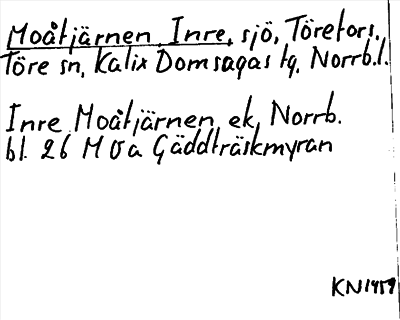 Moåtjärnen, Inre, sjö, Törefors,
Töre sn, Kalix Domsagas tg, Norrb.l.
Inre Moåtjärnen ek, Norrb.
bl. 26 M Ö a Gäddträskmyran
KN1959